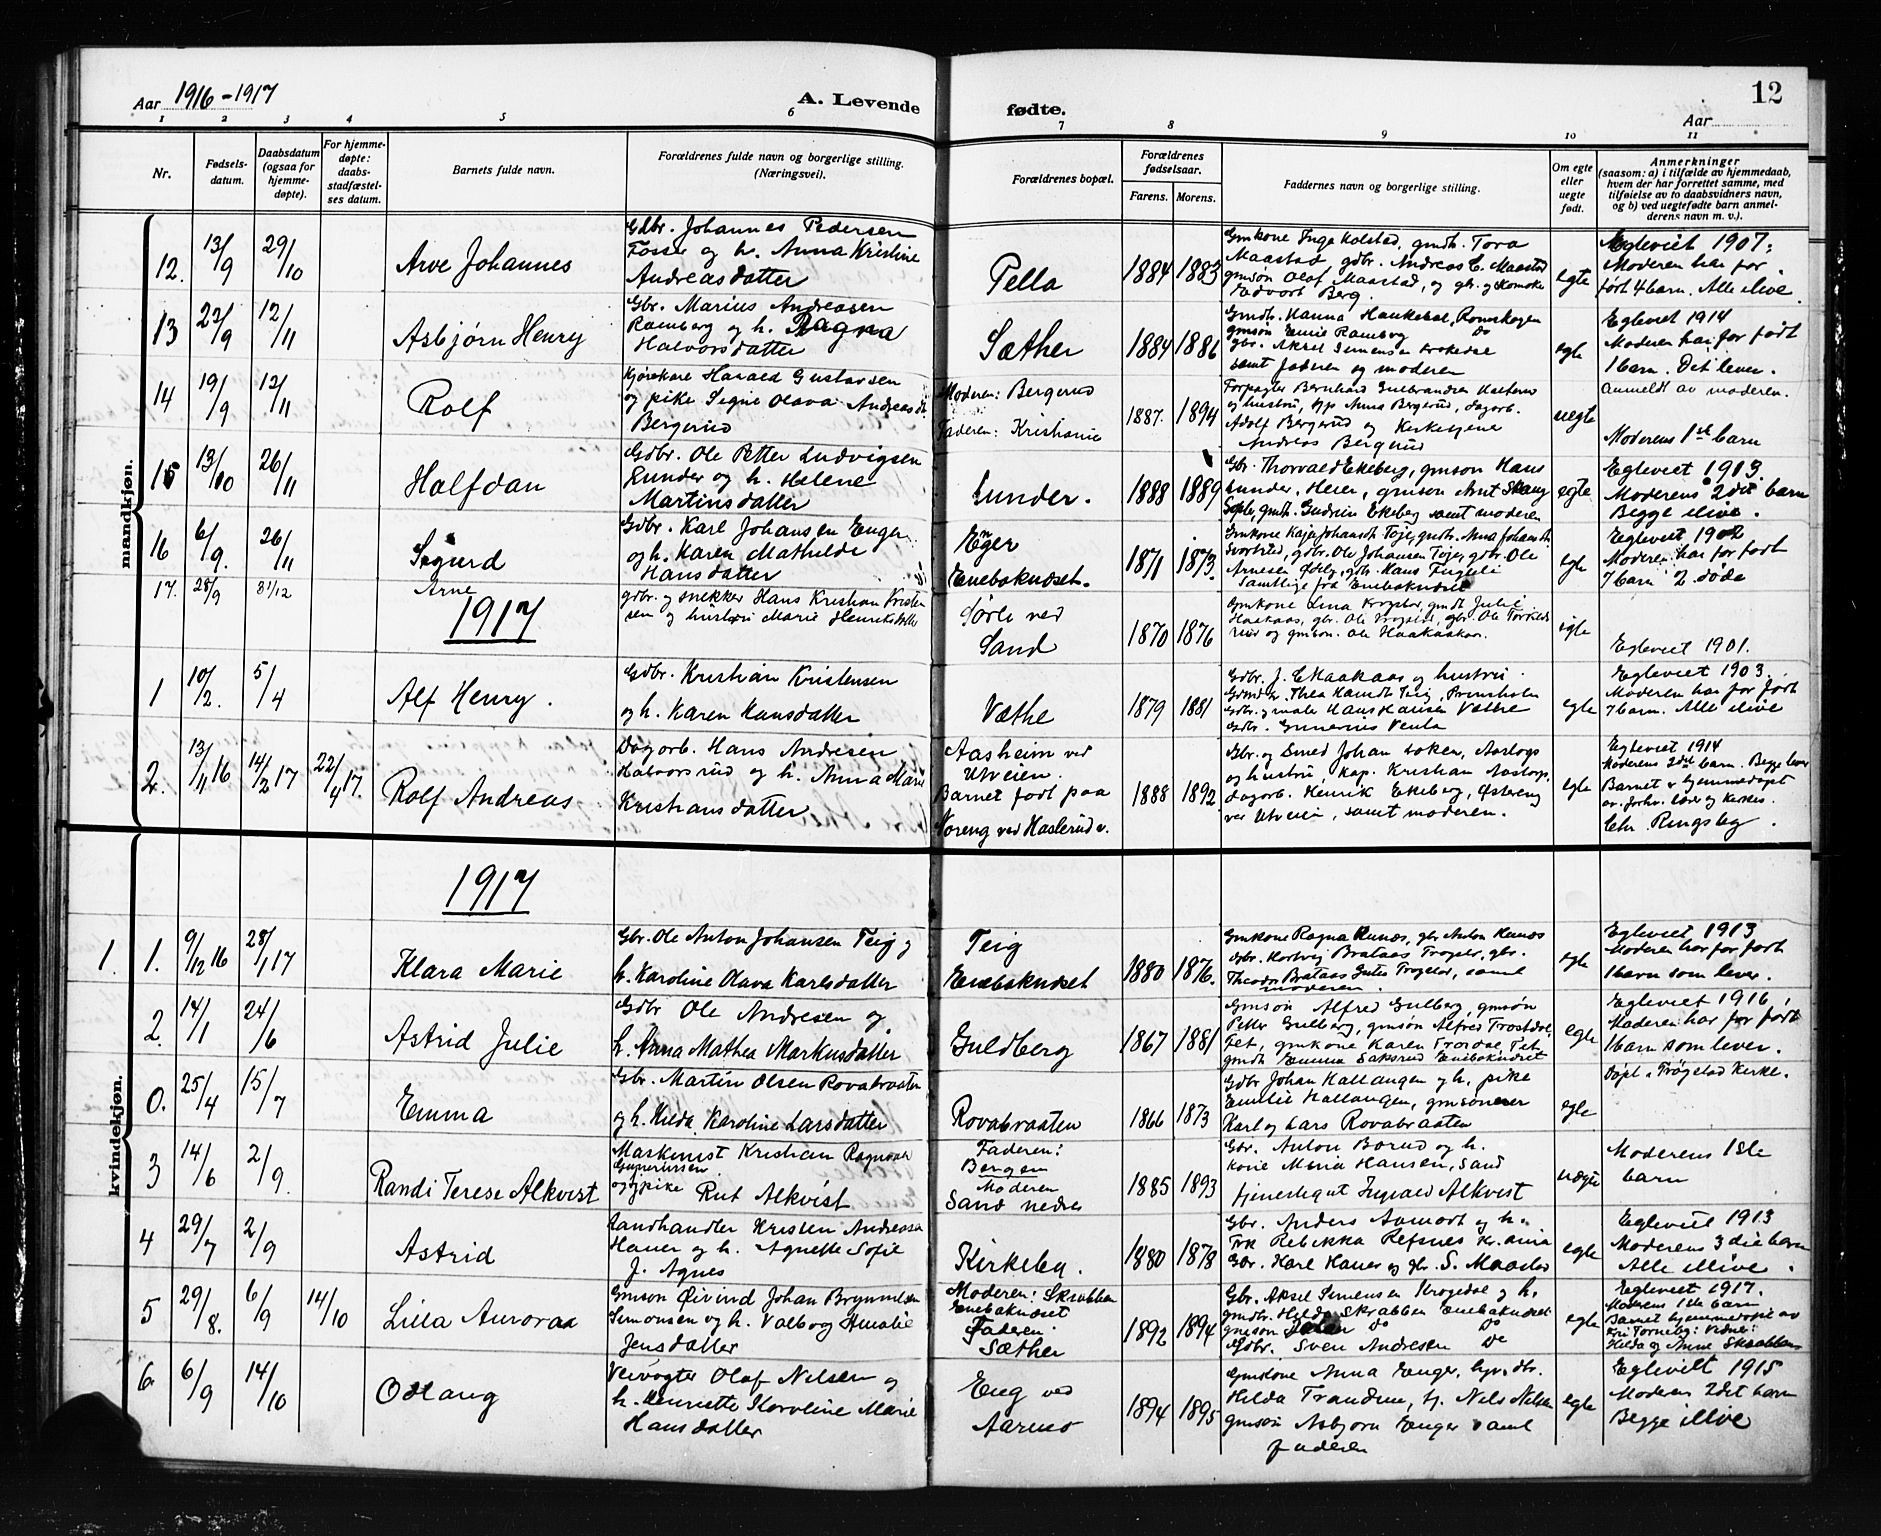 Aar 1916-1917
A. Levende fødte.
12
Aar
1 2 3 4 5 6 7 8 9 10 11
Nr.
Fødsels-
datum.
Daabsdatum
(ogsaa for
hjemme-
døpte).
For hjemme-
døpte:
daabs-
stadfæstel-
ses datum.
Barnets fulde navn.
Forældrenes fulde navn og borgerlige stilling.
(Næringsvei).
Forældrenes bopæl.
Forældrenes
fødselsaar.
Farens. Morens.
Faddernes navn og borgerlige stilling.
Om egte
eller
uegte
født.
Anmerkninger
(saasom: a) i tilfælde av hjemmedaab,
hvem der har forrettet samme, med
tilføielse av to daabsvidners navn,
og b) ved uegtefødte barn anmel-
derens navn m. v.).
mandkjøn.
12. 13/9 29/10 Arve Johannes
Gdbr. Johannes Pedersen
Fosser og h. Anna Kristine
Andreasdatter
Pella 1884 1883
Gmkone Inga Holstad, gmdt. Tora
Maastad gdbr. Andreas E. Maastad
gmsøn Olaf Maastad, og
Edvart Berg.
egte
Egteviet 1907.
Moderen har før
født 4 barn. Alle ilive.
13 22/9 12/11 Asbjørn Henry
Gbr. Marius Andreasen
Ramberg og h. Ragna
Halvorsdatter
Sæther 1884 1886
gmsøn Emil Ramberg do
gbr. Aksel Simensen Krokedal
samt faderen og moderen
egte
Egteviet 1914
Moderen har før født
1 barn. Det lever.
14 19/9 12/11 Rolf
Kjørekarl Harald Gustavsen
og pike Signe Olava Andreasdt.
Bergerud
Moderen: Bergerud
Faderen: Kristiania
1887. 1894
Forpagter Bernhard Gulbrandsen
og hustru, pp. Anna Bergerud, dagarb.
Adolf Bergerud og Kirketjener
Andreas Bergerud
uegte
Anmeldt av moderen.
Moderens 1ste barn
15 13/10 26/11 Halfdan
Gdbr. Ole Petter Ludvigsen
Lunder og h. Helene
Martinsdatter
Lunder. 1888 1889
Gbr. Thorvald Ekeberg, gmsøn Hans
Lunder, Heier, gmsøn Arnt Skaug
gmdt. Gudrun Ekeberg samt moderen
egte
Egteviet 1913.
Moderens 2det barn
Begge ilive.
16 6/9. 26/11 Sigurd
Gdbr. Karl Johansen Enger
og h. Karen Mathilde
Hansdatter
Enger
Enebaknæset.
1871 1873.
gdbr. Ole Johansen Teie, gdbr. Ole
Arnesen Østby, gbr. Hans Fugleli
Samtlige fra Enebaknæset
egte
Egteviet 1902
Moderen har før født
7 barn 2 døde
17. 28/9 31/12 Arne
gdbr. og snekker Hans Kristian Kristen
sen og hustru Marie Henriksdatter
Sørli ved
Sand
1870 1876
egte
Egteviet 1901.
1917
1 10/2. 5/4 Alf Henry.
Gdbr. Kristian Kristensen
og h. Karen Hansdatter
Væthe 1879 1881
Gdbr. J. E. Haakaas og hustru.
Gdbr. og maler Hans Hansen Væthe
Gdbr. Gunerius Venli
egte
Egteviet 1903.
Moderen har før født
7 barn. Alle ilive
2. 13/11 16 14/2 17 22/4 17. Rolf Andreas
Dagarb. Hans Andresen
Halvorsrud og h. Anna Marie
Kristiansdatter
Aasheim ved
Utveien.
Barnet født paa
Noreng ved Haslerud v.
1888 1892
Gbr. og Smed Johan Loken, Aaslogs
og hustru, Kap. Kristian Aaslogs,
dagarb. Henrik Ekeberg, Østereng
ved Utveien, samt moderen.
egte
Egteviet 1914
Moderens 2det barn. Begge lever
Barnet er hjemmedøpt
av forhv. lærer og kirkes.
Chr. Ringsby.
kvindekjøn.
1917
1. 1. 9/12 16 28/1 17 Klara Marie
Gbr. Ole Anton Johansen Teig og
h. Karoline Olava Karlsdatter
Teig
Enebaknæset
1880 1876.
Gmkone Ragna Runæs, gbr Anton Runæs
gbr. Hartvig Brataas Trøgstad, gbr.
Theodor Brataas Trøgstad, samt
moderen.
egte
Egteviet 1913.
Moderen har før født
1 barn som lever.
2. 14/1 24/6 Astrid Julie
Gdbr Ole Andresen og
h. Anna Mathea Markusdatter
Guldberg 1867 1881
Gmsøn Alfred Gulberg, gmsøn
Petter Gulberg, gmsøn Alfred Trosdal,
Fet, gmkone Karen Trosdal Fet
gmdt Emma Saksrud Enebaknæset
egte
Egteviet 1916.
Moderen har før født
1 barn som lever.
0. 25/4 15/7 Emma
Gbr. Martin Olsen Rovabraaten
og h. Hilda Karoline Larsdatter
Rovabraaten 1866 1873
Gdbr Johan Hallangen og h. pike
Emilie Hallangen, gmsønner
Karl og Lars Rovabraaten
egte
Døpt i Trøgstad Kirke.
3 14/6 2/9. Randi Terese Alkvist
Maskinist Kristian Ragnvald
Guneriussen
og pike Rut Alkvist
Faderen:
Bergen
Moderen
Sand nedre
1885 1893
Gbr. Anton Borud og h.
kone Mina Hansen, Sand
tjenestegut Ingvald Alkvist
uegte
Moderens 1ste
barn
4 29/7 2/9 Astrid
Landhandler Kristen Andreassen
Hauer og h. Agnette Sofie
f. Agnes
Kirkeby. 1880 1878
Gbr. Anders Aamodt og h.
Frk Rebekka Refsnes Kr.ania
Gbr. Karl Hauer og gbr. S. Maastad
egte
Egteviet 1913
Moderens 3die barn
Alle ilive.
5 29/8. 6/9 14/10 Lilla Aurora
Gmsøn Øivind Johan Brynulfsen
Simonsen og h. Valborg Amalie
Jensdatter
Moderen: Skrabben
Enebaknæset
Faderen:
Sæther
1892 1894
Gbr. Aksel Simensen Krogedal og h.
gmdt. Hilda Skrabben Enebaknæset
gmsøn Johan do do
Gdbr. Sven Andresen do
egte
Egteviet 1917.
Moderens 1ste barn
Barnet hjemmedøpt av
Frk Torneby: Vidner:
Hilda og Anne Skrabben
6 6/9 14/10 Odlaug
Veivogter Olaf Nilsen og
h. Henriette Karoline Marie
Hansdatter
Eng ved
Aarnes
1894 1895
Gmkone Anna Enger, hgv. dtr.
Hilda Trandum, hj. Nils Nilsen
gmsøn Asbjørn Enger samt
faderen
egte
Egteviet 1915
Moderen 2det barn
Begge ilive